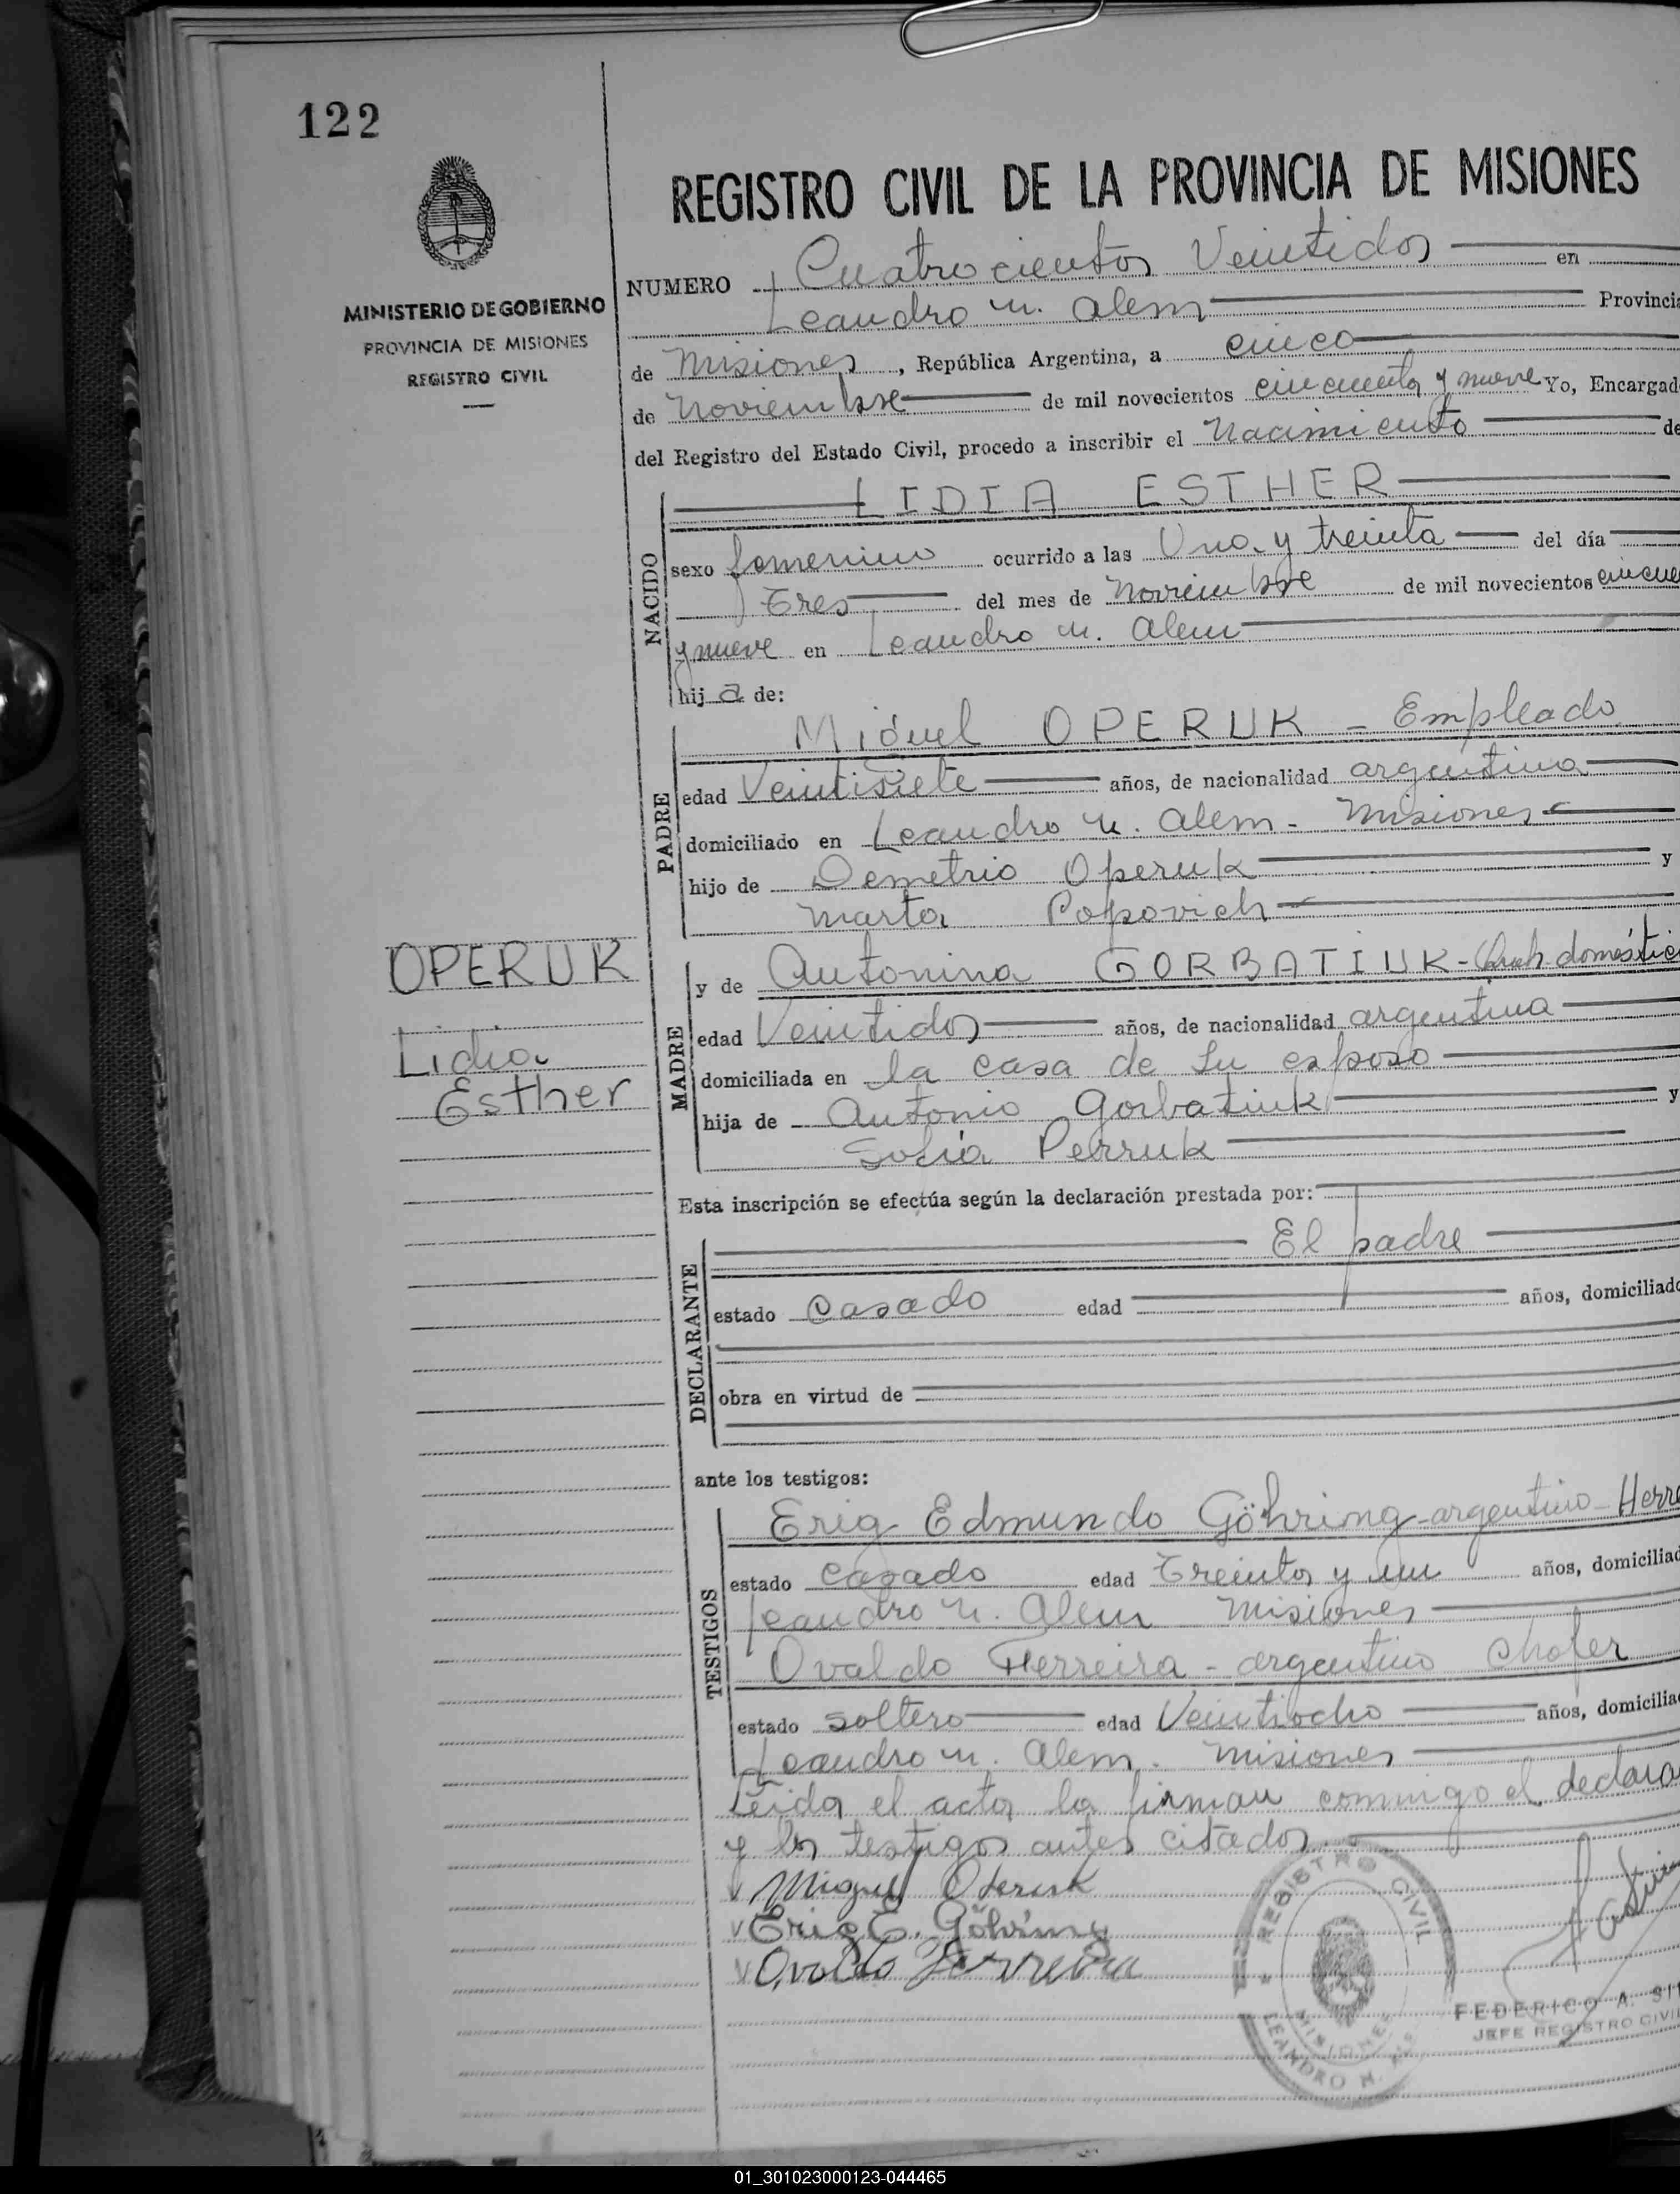 122
MINISTERIO DE GOBIERNO
PROVINCIA DE MISIONES
REGISTRO CIVIL
REGISTRO CIVIL DE LA PROVINCIA DE MISIONES
NUMERO Cuatrocientos Veintidos en
Leandro N. Alem Provincia
de Misiones, República Argentina, a cinco
de Noviembre de mil novecientos cincuenta y nueve Yo, Encargad
del Registro del Estado Civil, procedo a inscribir el Nacimiento de
NACIDO
LIDIA ESTHER
sexo femenino ocurrido a las Una y treinta del día
Tres del mes de Noviembre de mil novecientos cincue
y nueve en Leandro N. Alem
hija de:
PADRE
Miguel OPERUK - Empleado
edad Veintisiete años, de nacionalidad argentina
domiciliado en Leandro N. Alem - Misiones
hijo de Demetrio Operuk y
Marta Popovich
OPERUK
Lidia
Esther
MADRE
y de Antonina GORBATIUK - domestic
edad Veintidos años, de nacionalidad argentina
domiciliada en la casa de su esposo
hija de Antonio Gorbatiuk y
Sofia Perruk
Esta inscripción se efectúa según la declaración prestada por:
DECLARANTE
El padre
estado Casado edad años, domiciliado
obra en virtud de
ante los testigos:
TESTIGOS
Erig Edmundo Göhring - argentino - Herre
estado casado edad Treinta y un años, domiciliad
Leandro N. Alem Misiones
Ovaldo Ferreira - argentino Chofer
estado soltero edad Veintiocho años, domicilia
Leandro N. Alem - Misiones
Leida el acta la firman conmigo el declara
y los testigos antes citados.
Miguel Operuk
Erig E. Göhring
Ovaldo Ferreira
REGISTRO CIVIL
MISIONES
LEANDRO N.
FEDERICO A.
JEFE REGISTRO CIVIL
01_301023000123-044465